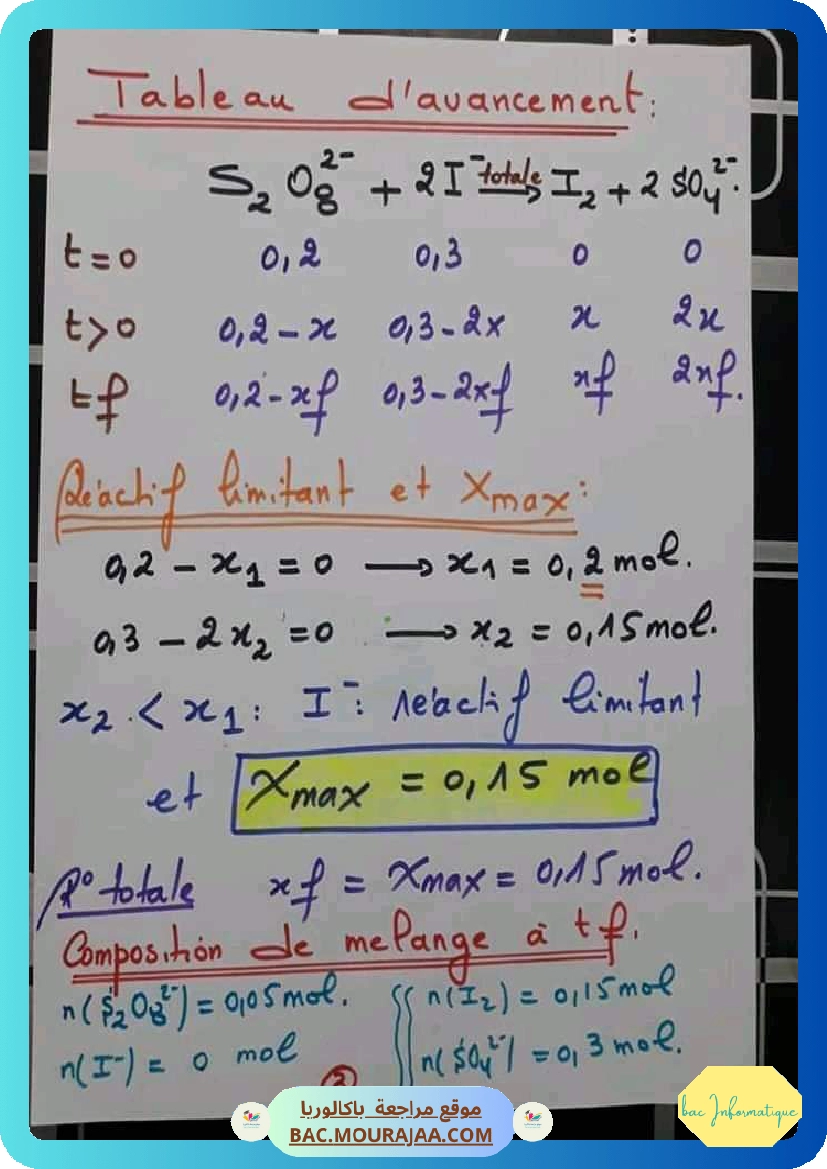 Tableau d'avancement:
S₂O₈²⁻ + 2I⁻ totale→ I₂ + 2SO₄²⁻.
t=0 0,2 0,3 0 0
t>0 0,2-x 0,3-2x x 2x
tf 0,2-xf 0,3-2xf xf 2xf.
Réactif limitant et Xmax:
0,2 - x₁ = 0 → x₁ = 0,2 mol.
0,3 - 2x₂ = 0 → x₂ = 0,15 mol.
x₂ < x₁: I⁻: réactif limitant
et Xmax = 0,15 mol
R° totale xf = Xmax = 0,15 mol.
Composition de melange à tf.
n(S₂O₈²⁻) = 0,05 mol. n(I₂) = 0,15 mol
n(I⁻) = 0 mol n(SO₄²⁻) = 0,3 mol.
موقع مراجعة باكالوريا
BAC.MOURAJAA.COM
bac Informatique